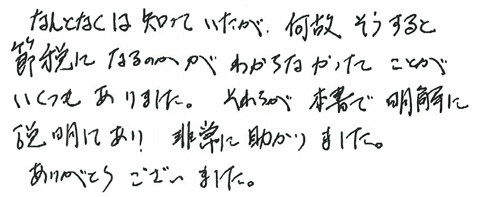 なんとなくは知っていたが、何故そうすると
節税になるのかがわからなかったことが
いくつもありました。それらが本書で明解に
説明にあり、非常に助かりました。
ありがとうございました。